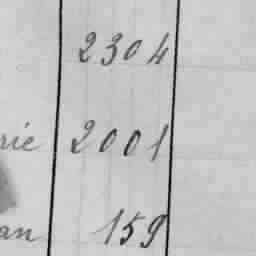 2304
rie 2001
an 159